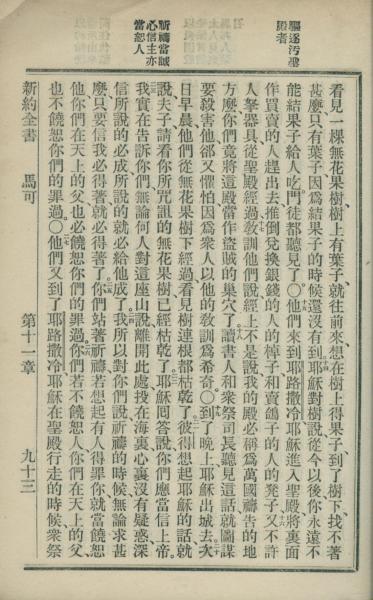 驅逐污聖
殿者
祈禱當誠
心信主亦
當恕人
看見一棵無花果樹樹上有葉子、就往前來、想在樹上得果子、到了樹下、找不著
甚麼只有葉子因爲結果子的時候還沒有到耶穌對樹說從今以後你永遠不
能結果子給人吃門徒都聽見了〇他們來到耶路撒冷耶穌進入聖殿將裏面
作買賣的人趕出去推倒兌換銀錢的人的棹子和賣鴿子的人的凳子又不許
人拏器具從聖殿經過教訓他們說經上不是說我的殿必稱爲萬國禱告的地
方麼你們竟將這殿當作盜賊的巢穴了讀書人和衆祭司長聽見這話就圖謀
要殺害他卻又懼怕因爲衆人以他的教訓爲希奇〇到了晚上耶穌出城去次
日早晨他們從無花果樹下經過看見樹連根都枯乾了彼得想起耶穌的話就
說夫子請看你所咒詛的無花果樹已經枯乾了耶穌囘答說你們應當信上帝
我實在告訴你們無論何人對這座山說離開此處投在海裏心裏沒有疑惑深
信所說的必成所說的就必給他成了我所以對你們說祈禱的時候無論求甚
麼只要信我必得著就必得著了你們站著祈禱若想起有人得罪你就當饒恕
他你們在天上的父也必饒恕你們的罪過你們若不饒恕人你們在天上的父、
也不饒恕你們的罪過〇他們又到了耶路撒冷耶穌在聖殿行走的時候衆祭
新約全書 馬可 第十一章 九十三